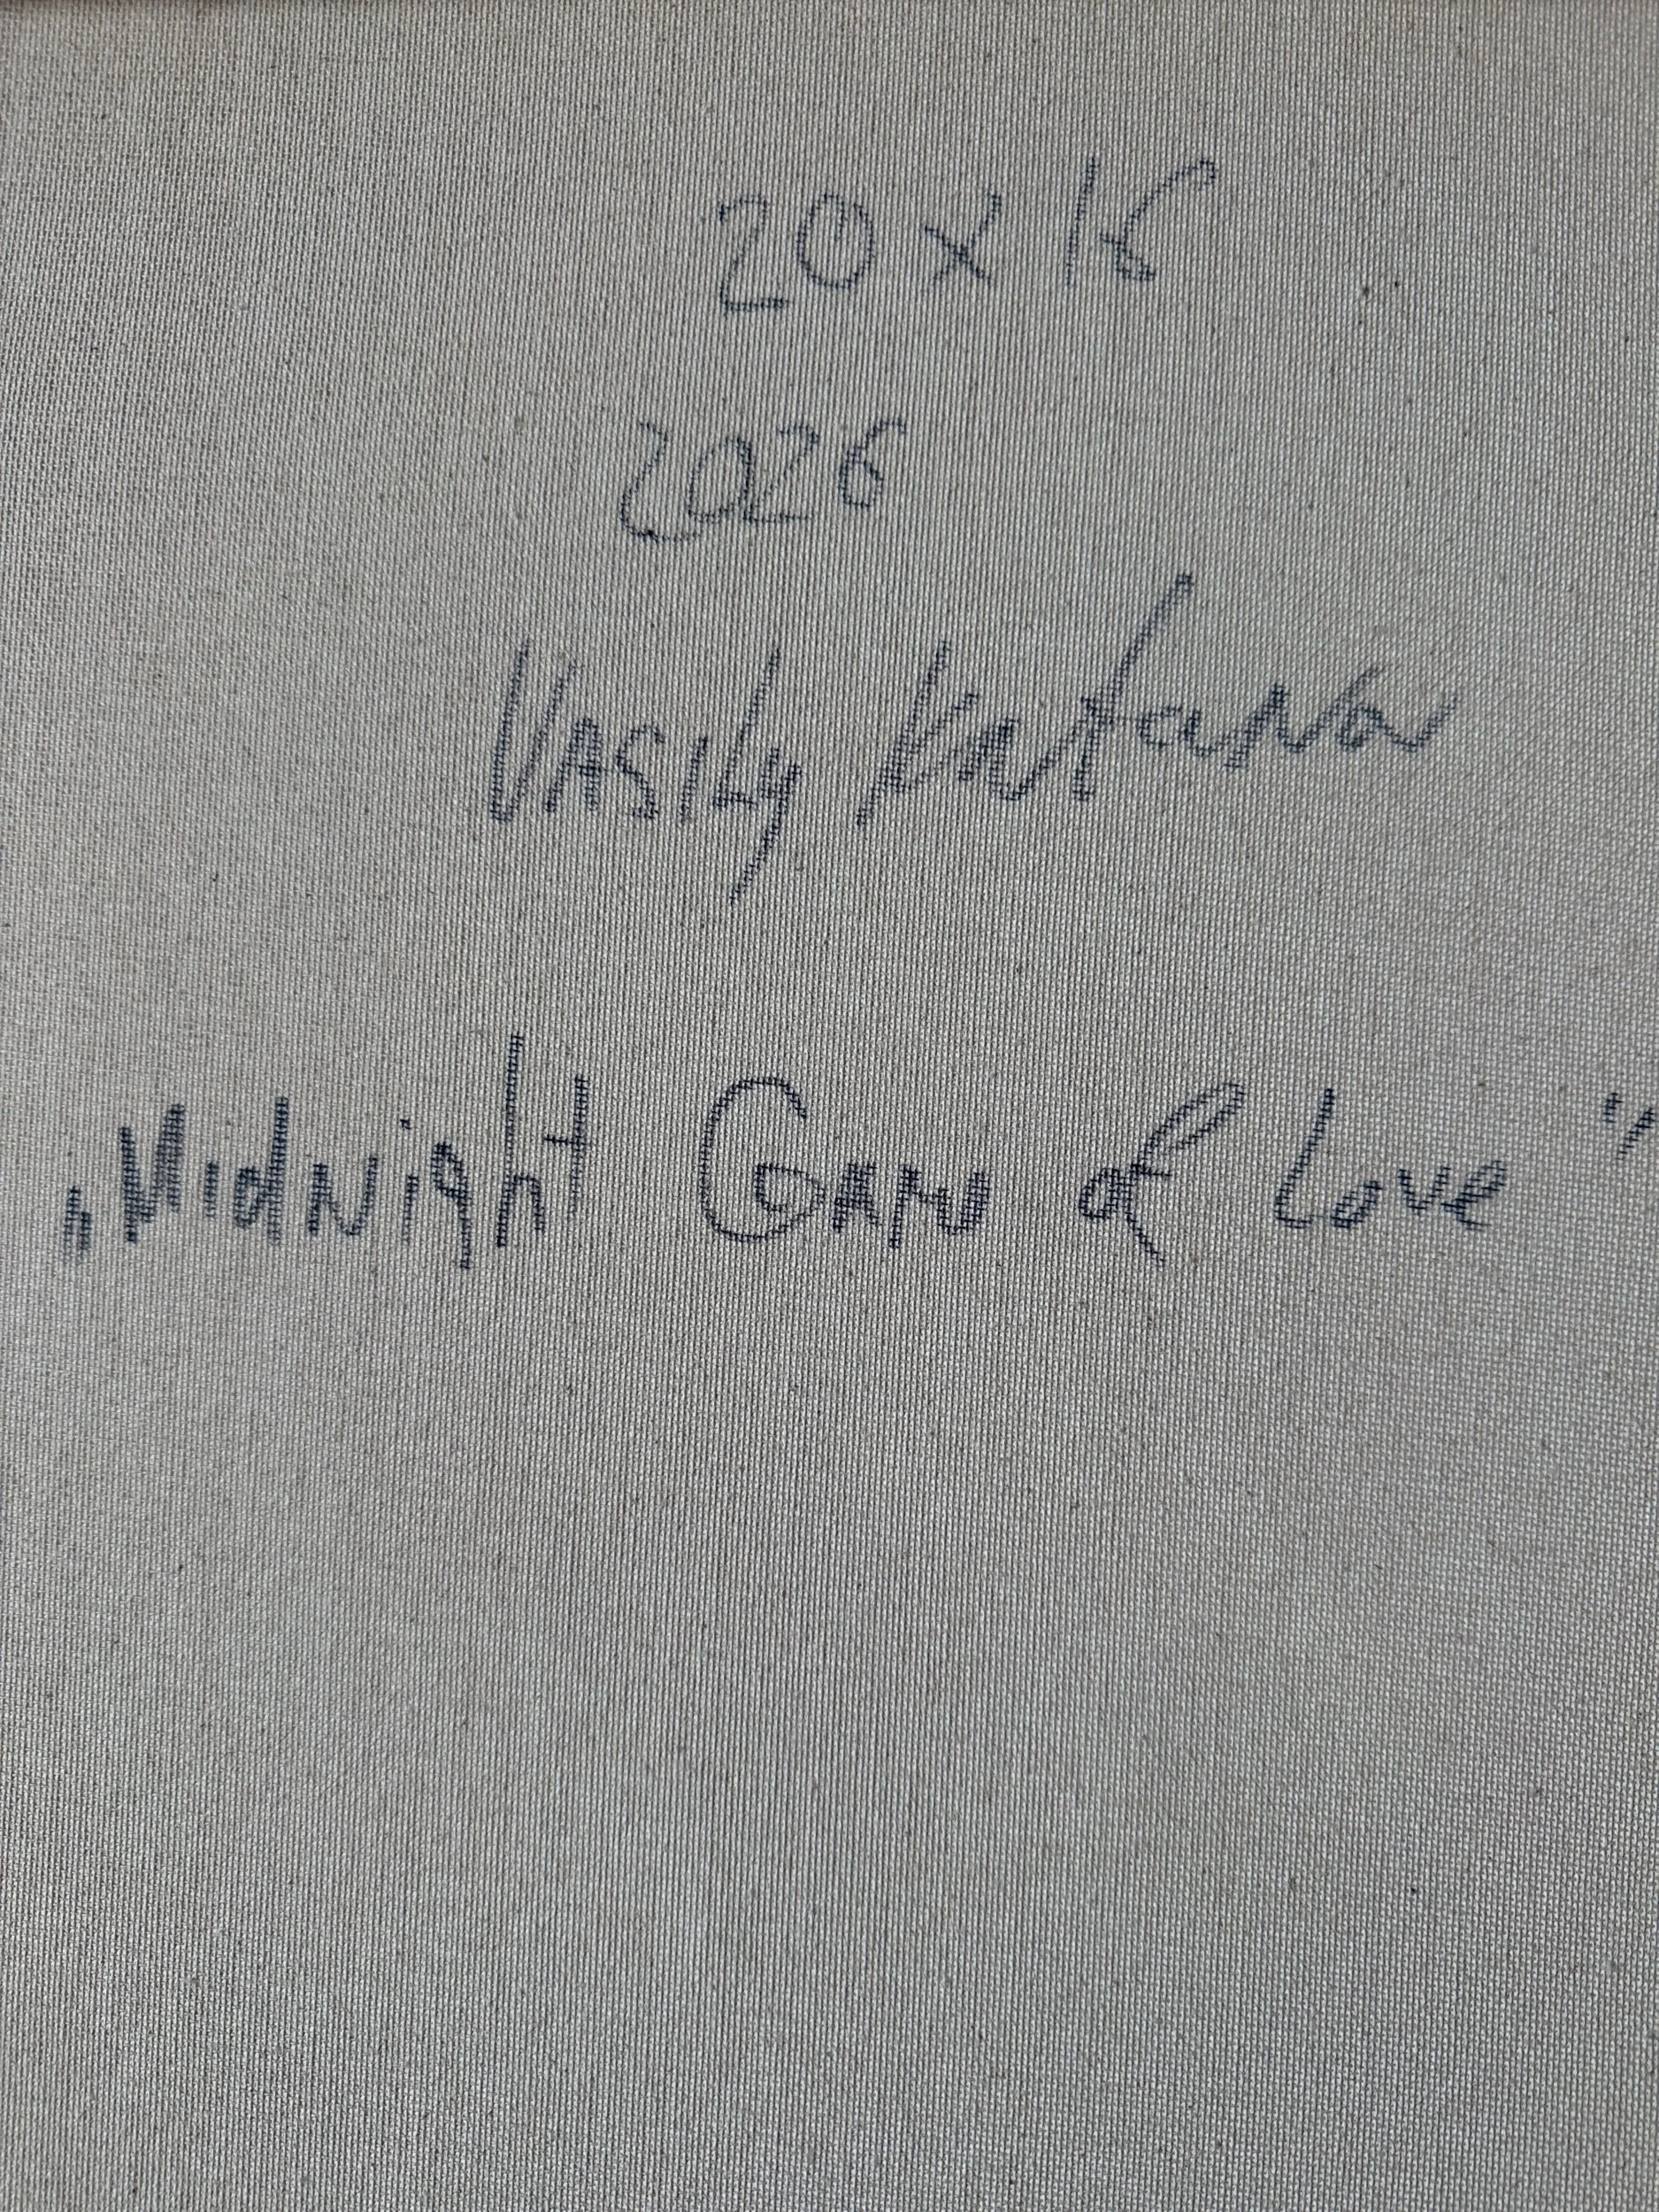 20 x 16
2026
Vasily Katana
„Midnight of Love"